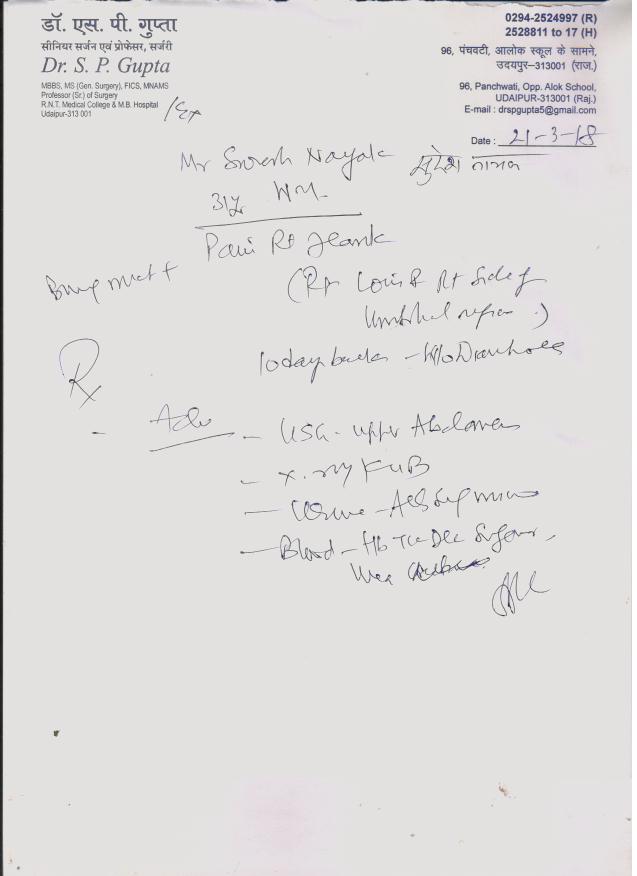 डॉ. एस. पी. गुप्ता
सीनियर सर्जन एवं प्रोफेसर, सर्जरी
Dr. S. P. Gupta
MBBS, MS (Gen. Surgery), FICS, MNAMS
Professor (Sr.) of Surgery
R.N.T. Medical College & M.B. Hospital
Udaipur-313 001
0294-2524997 (R)
2528811 to 17 (H)
96, पंचवटी, आलोक स्कूल के सामने,
उदयपुर–313001 (राज.)
96, Panchwati, Opp. Alok School,
UDAIPUR-313001 (Raj.)
E-mail : drspgupta5@gmail.com
Date : 21-3-18
Mr Suresh Nayak सुरेश नायक
Pain Rt flank
(Rt Loin & Rt Side of
Umbilical region)
10 day back - H/o Diarrhoea
Rx
- Adv - USG - upper Abdomen
- X-ray KUB
- Urine -
- Blood - Hb TLC DLC Sugar,
Urea